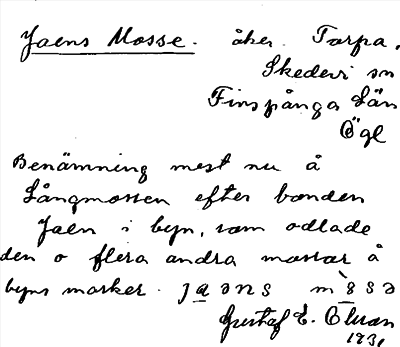 Jaens Mosse. åker. Torpa,
Skedevi sn
Finspånga Län
Ögl
Benämning mest nu å
Långmossen efter bonden
Jaen i byn, som odlade
den o flera andra mossar å
byns marker. jaəns mòsə
Gustaf E.
1931